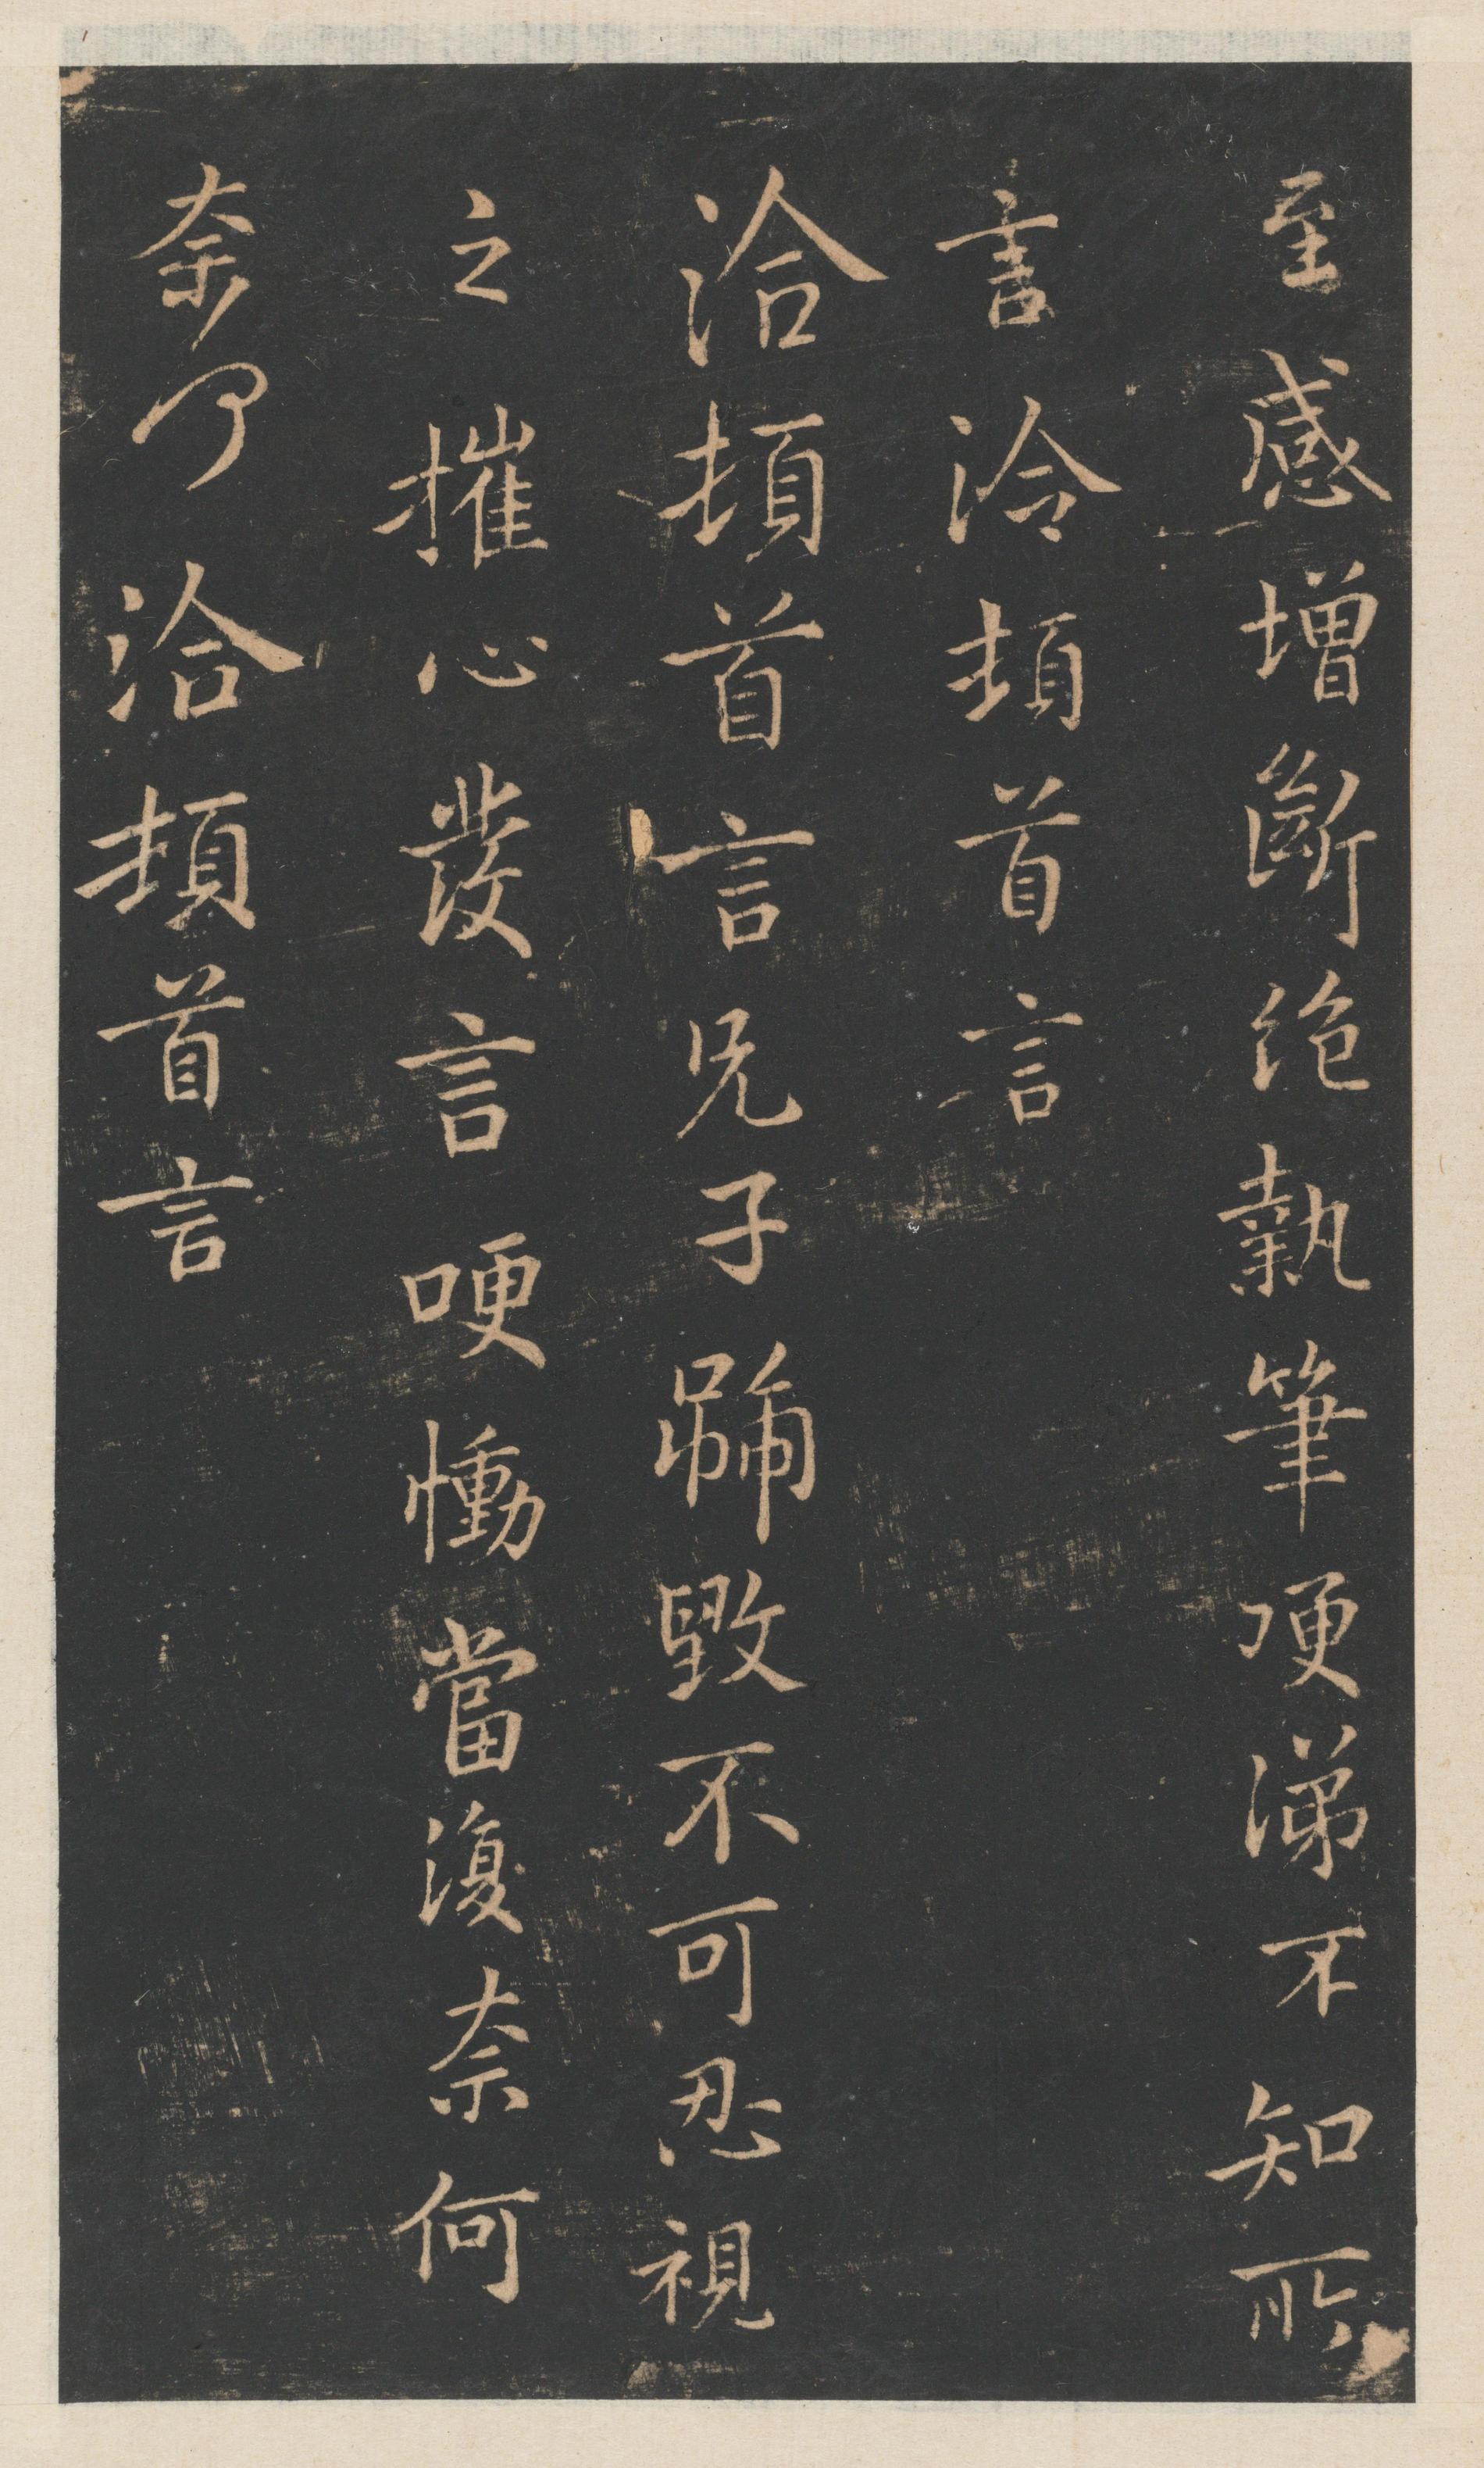 至感增斷絕執筆哽涕不知所
言洽頓首言
洽頓首言兄子號毀不可忍視
之摧心發言哽慟當復奈何
奈何洽頓首言